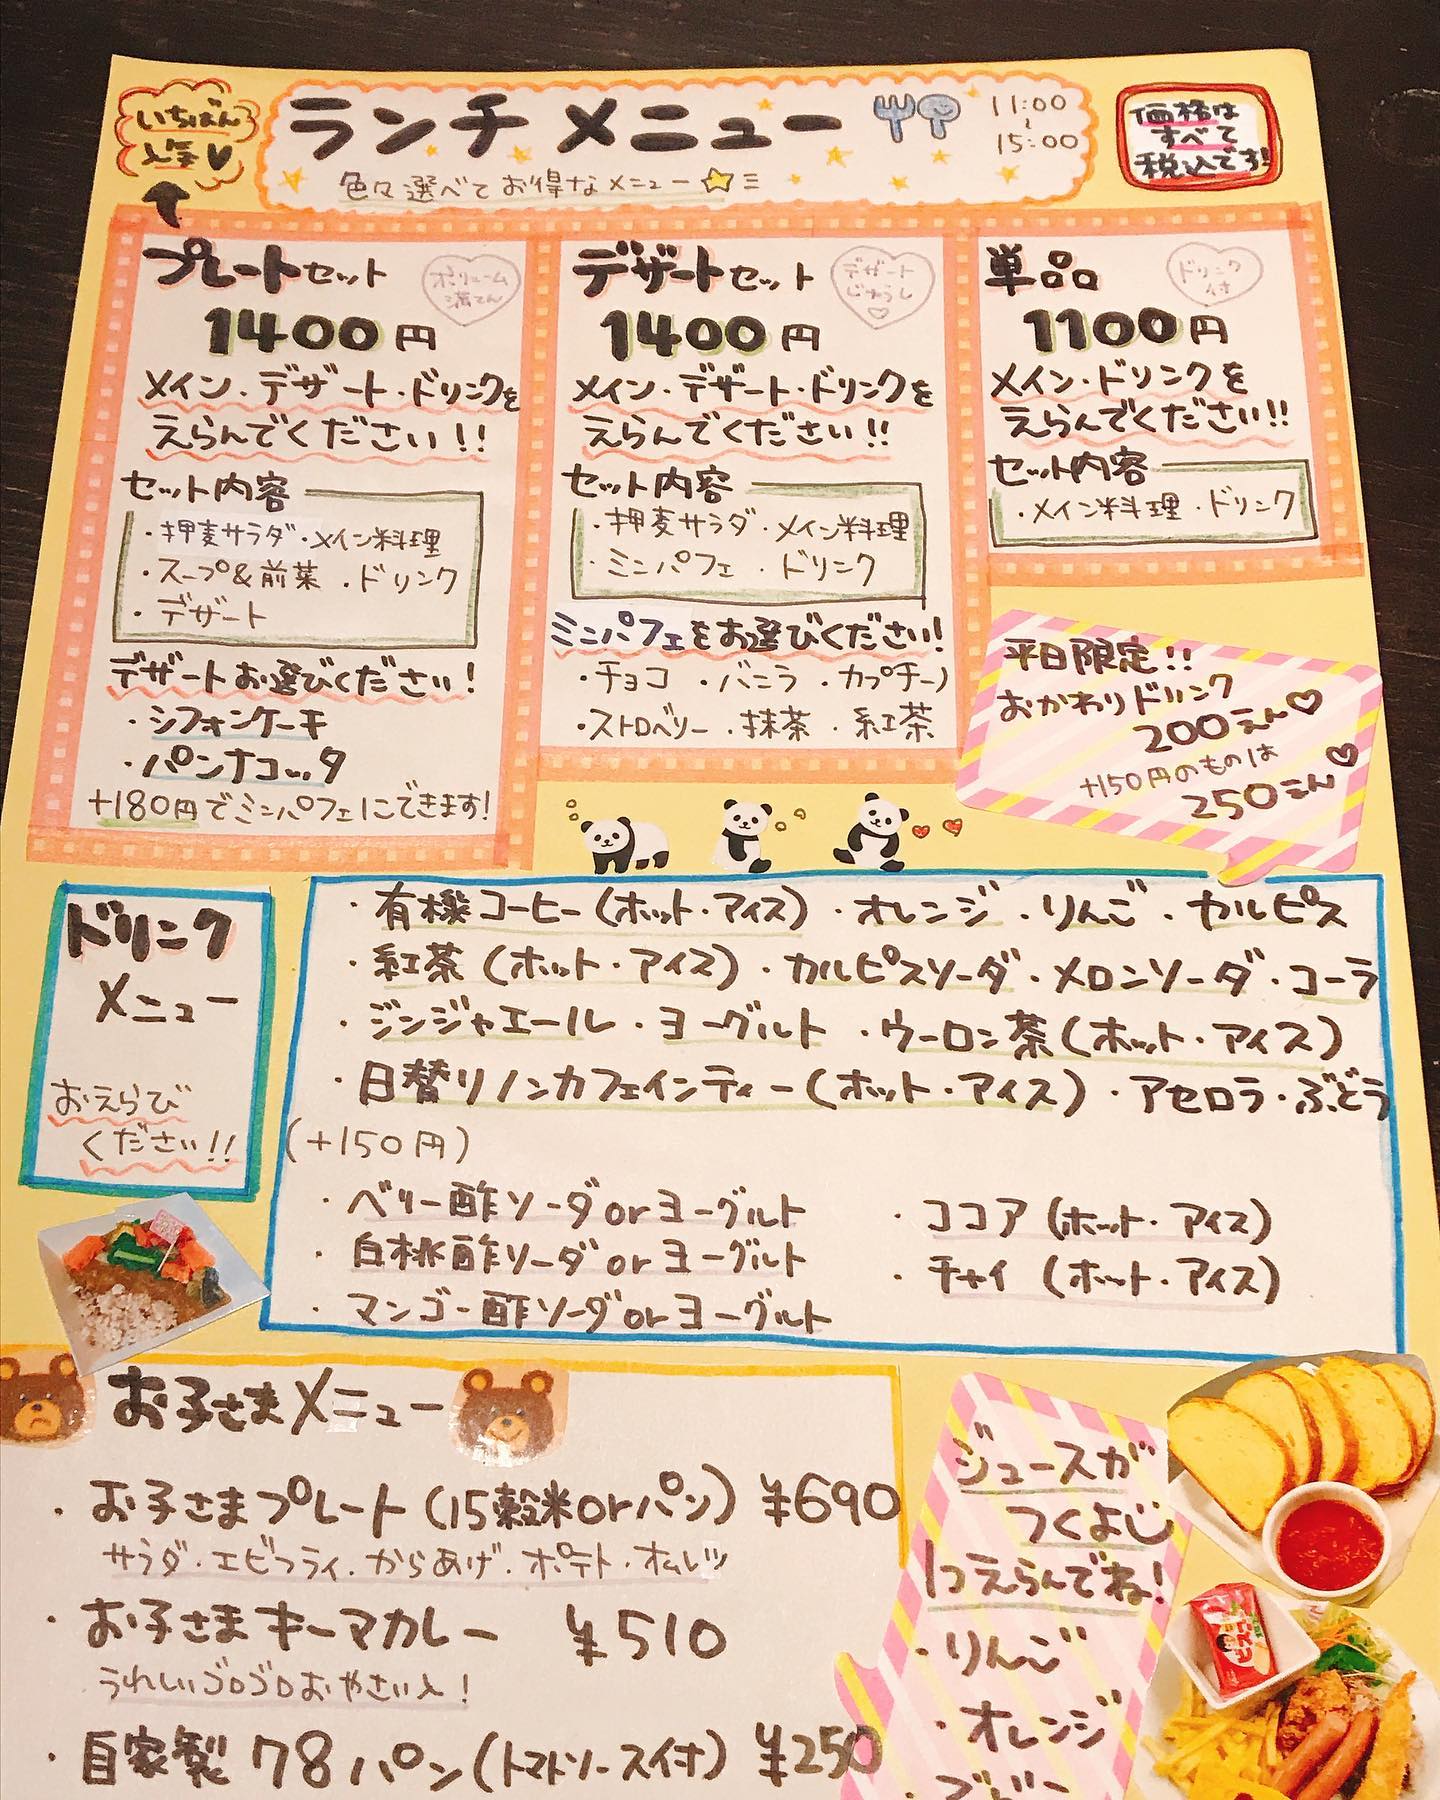 いちばん
人気♥
ランチメニュー
11:00
~
15:00
色々選べてお得なメニュー☆
価格は
すべて
税込です!
プレートセット
ボリューム
満てん
1400円
メイン・デザート・ドリンクを
えらんでください!!
セット内容
・押麦サラダ・メイン料理
・スープ&前菜・ドリンク
・デザート
デザートお選びください!
・シフォンケーキ
・パンナコッタ
+180円でミニパフェにできます!
デザートセット
デザート
じゅうし
♡
1400円
メイン・デザート・ドリンクを
えらんでください!!
セット内容
・押麦サラダ・メイン料理
・ミニパフェ・ドリンク
ミニパフェをお選びください!
・チョコ・バニラ・カプチーノ
・ストロベリー・抹茶・紅茶
単品
ドリンク
付
1100円
メイン・ドリンクを
えらんでください!!
セット内容
・メイン料理・ドリンク
平日限定!!
おかわりドリンク
200えん♡
+150円のものは
250えん♡
ドリンク
メニュー
おえらび
ください!!
・有機コーヒー(ホット・アイス)・オレンジ・りんご・カルピス
・紅茶(ホット・アイス)・カルピスソーダ・メロンソーダ・コーラ
・ジンジャエール・ヨーグルト・ウーロン茶(ホット・アイス)
・日替りノンカフェインティー(ホット・アイス)・アセロラ・ぶどう
(+150円)
・ベリー酢ソーダorヨーグルト
・白桃酢ソーダorヨーグルト
・マンゴー酢ソーダorヨーグルト
・ココア(ホット・アイス)
・チャイ(ホット・アイス)
お子さまメニュー
・お子さまプレート(15穀米orパン)¥690
サラダ・エビフライ・からあげ・ポテト・オムレツ
・お子さまキーマカレー ¥510
うれしいゴロゴロおやさい入!
・自家製78パン(トマトソース付)¥250
ジュースが
つくよ
1つえらんでね!
・りんご
・オレンジ